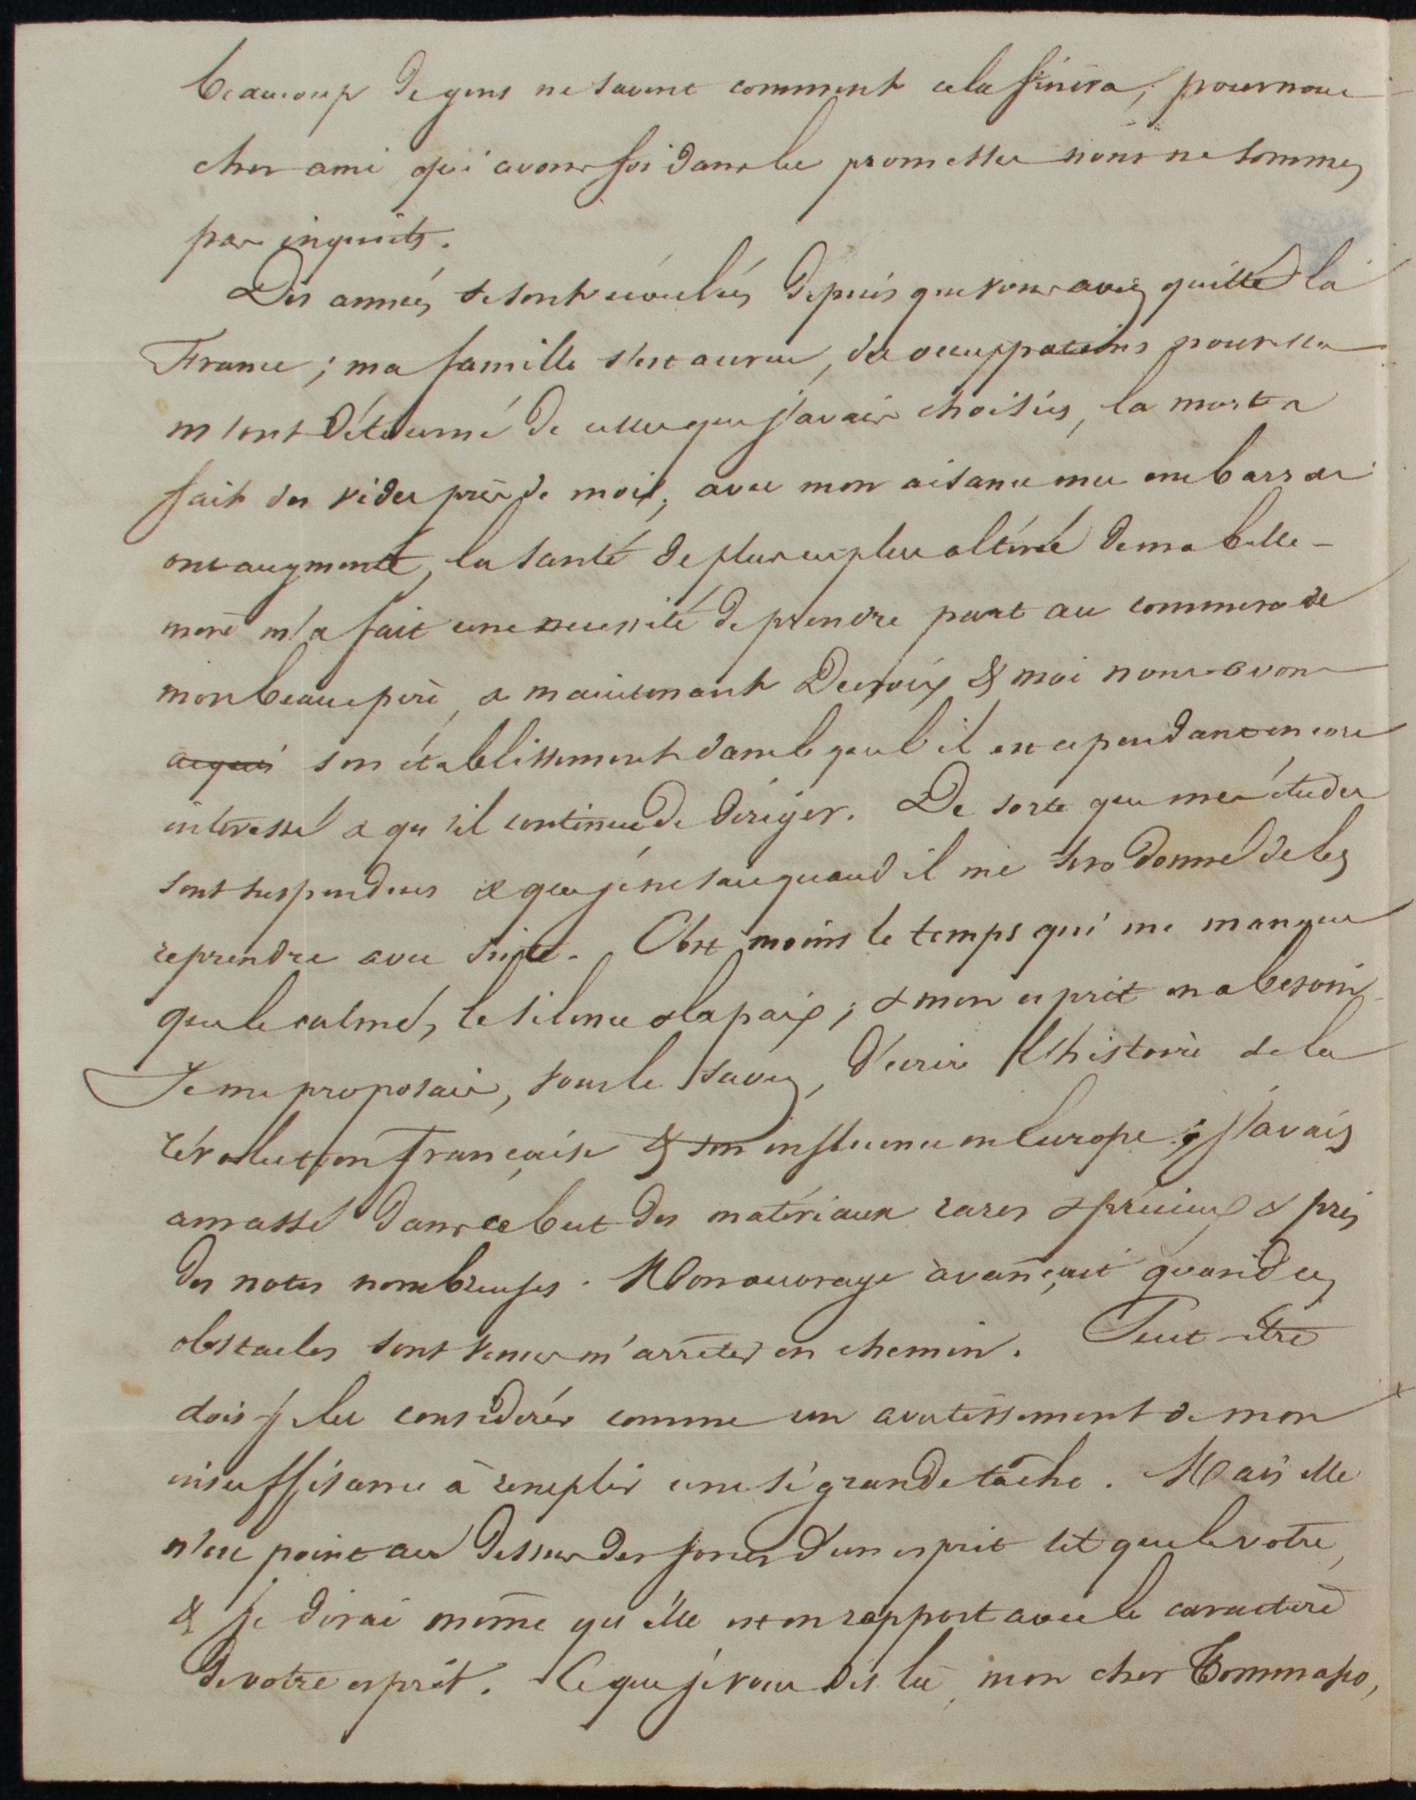 beaucoup de gens ne savent comment cela finira, pour nous
cher ami qui avons foi dans les promesses nous ne sommes
pas inquiets.
Dix années se sont écoulées depuis que vous avez quitté la
France ; ma famille s'est accrue, des occuppations nouvelles
m'ont détourné de celles que j'avais choisies, la mort a
fait des vides près de moi ; avec mon aisance mes embarras
ont augmenté, la santé de plus en plus altérée de ma belle-
mère m'a fait une necessité de prendre part au commerce de
mon beau-père, & maintenant & moi nous avons
acquis son établissement dans lequel il est cependant encore
intéressé & qu'il continue de diriger. De sorte que mes études
sont suspendues & que je ne sais quand il me sera donné de les
reprendre avec suite. C'est moins le temps qui me manque
que le calme, le silence & la paix ; & mon esprit en a besoin.
Je me proposais, vous le savez, d'écrire l'histoire de la
révolution française & son influence en Europe ; j'avais
amassé dans ce but des matériaux rares & précieux & pris
des notes nombreuses. Mon ouvrage avançait quand ces
obstacles sont venus m'arrêter en chemin. Peut-être
dois-je les considérer comme un avertissement de mon
insuffisance à remplir une si grande tâche. Mais elle
n'est point au dessus des forces d'un esprit tel que le votre,
& je dirai même qu'elle est en rapport avec le caractère
de votre esprit. Ce que je vous dis là, mon cher Tommaso,